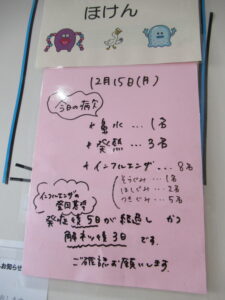 ほけん
12月15日(月)
今日の病欠
＊鼻水…1名
＊発熱…3名
＊インフルエンザ…8名
そうじみ…1名
ほしじみ…2名
つきじみ…5名
インフルエンザの
登園基準
発症後5日が経過し かつ
解ネツ後3日 です。
ご確認お願いします。
お知らせ